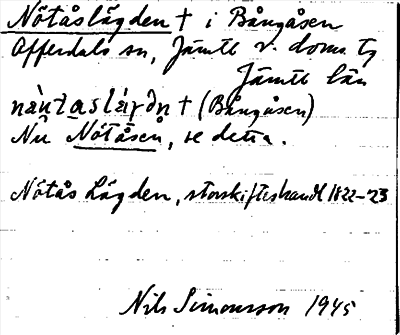 Nötåslägden † i Bångåsen
Offerdals sn, Jämtl v. doms tg
Jämtl län
† (Bångåsen)
Nu Nötåsen, se detta.
Nötås Lägden, storskifteshandl 1822-23
Nils Simonsson 1945